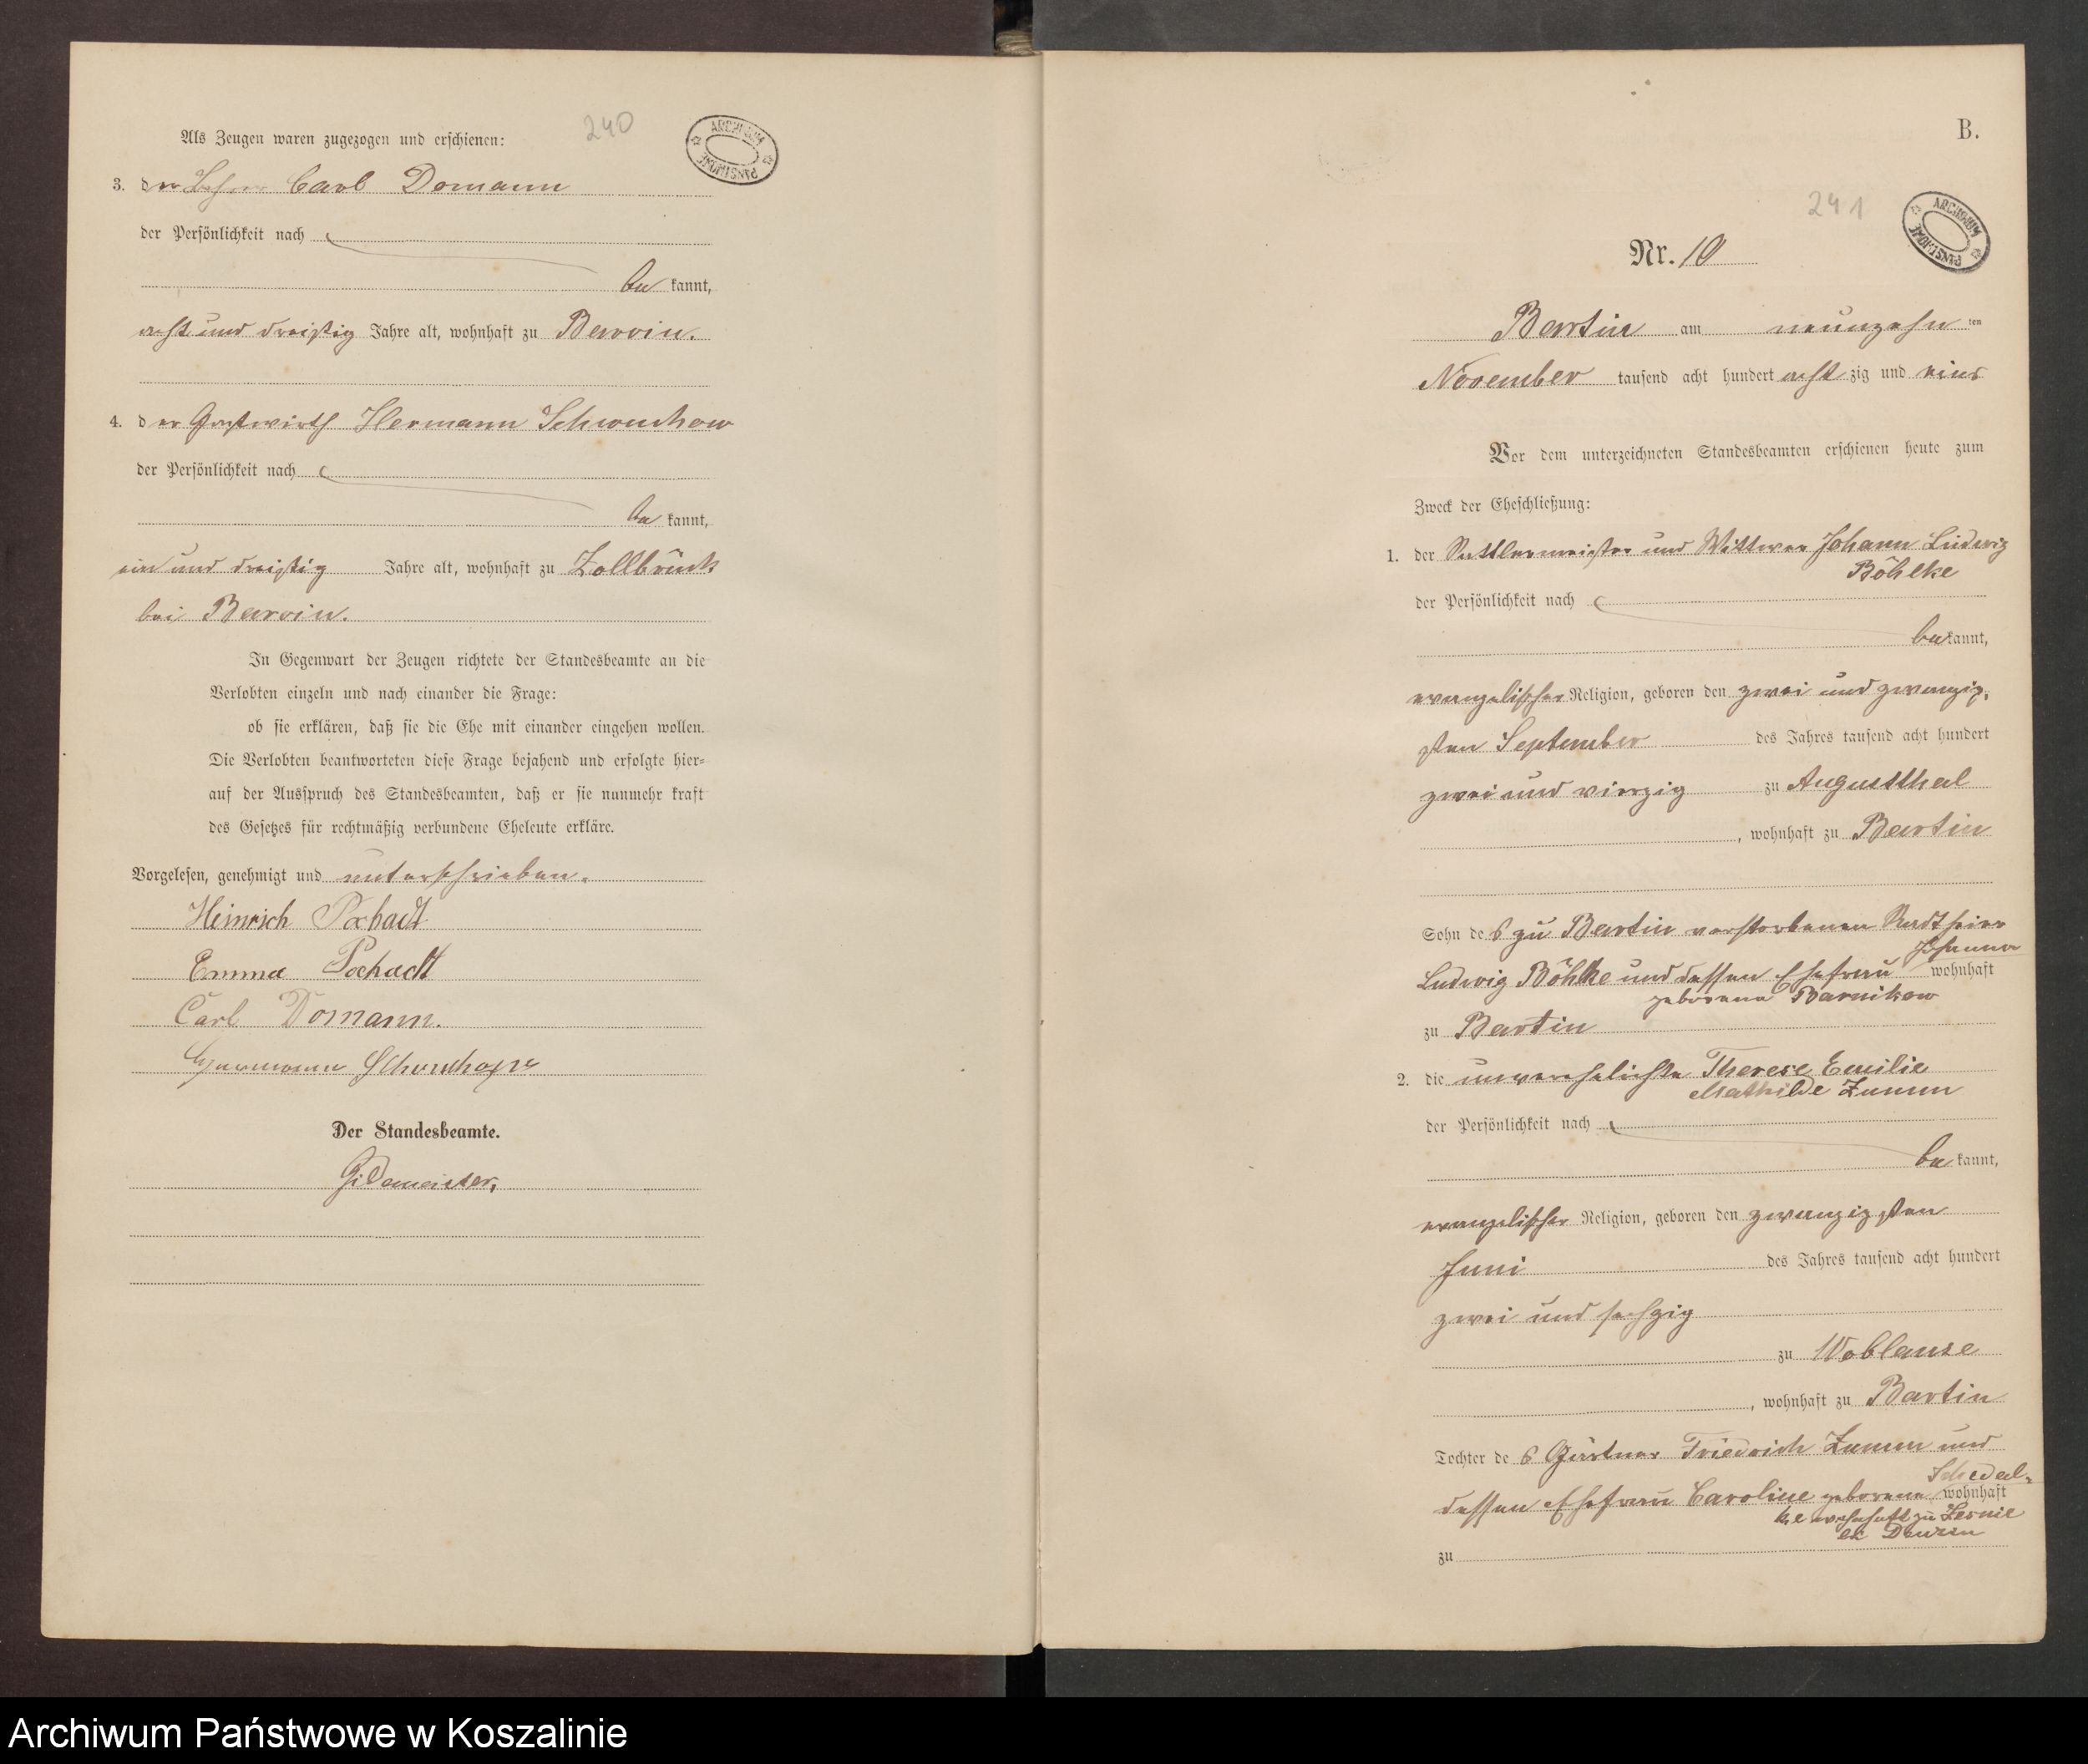 240
ARCHIWUM PAŃSTWOWE
Als Zeugen waren zugezogen und erschienen:
3. der Lehrer Carl Domann
der Persönlichkeit nach
be kannt,
acht und dreißig Jahre alt, wohnhaft zu Barvin.
4. der Gastwirth Hermann Schwuchow
der Persönlichkeit nach
be kannt,
ein und dreißig Jahre alt, wohnhaft zu Zollbrück
bei Barvin.
In Gegenwart der Zeugen richtete der Standesbeamte an die
Verlobten einzeln und nach einander die Frage:
ob sie erklären, daß sie die Ehe mit einander eingehen wollen.
Die Verlobten beantworteten diese Frage bejahend und erfolgte hier-
auf der Ausspruch des Standesbeamten, daß er sie nunmehr kraft
des Gesetzes für rechtmäßig verbundene Eheleute erkläre.
Vorgelesen, genehmigt und unterschrieben.
Heinrich Pochadt
Emma Pochadt
Carl Domann.
Hermann
Der Standesbeamte.
Gildemeister,
B.
241
ARCHIWUM PAŃSTWOWE
Nr. 10
Bartin am neunzehn ten
November tausend acht hundert acht zig und eins
Vor dem unterzeichneten Standesbeamten erschienen heute zum
Zweck der Eheschließung:
1. der Sattlermeister und Wittwer Johann Ludwig
Böhlke
der Persönlichkeit nach
be kannt,
evangelischer Religion, geboren den zwei und zwanzig-
sten September des Jahres tausend acht hundert
zwei und vierzig zu Augustthal
, wohnhaft zu Bartin
Sohn de s zu Bartin verstorbenen
Johanna
Ludwig Böhlke und dessen Ehefrau wohnhaft
geborene Barnikow
zu Bartin
2. die unverehelichte Therese Emilie
Mathilde Zumm
der Persönlichkeit nach
be kannt,
evangelischer Religion, geboren den zwanzigsten
Juni des Jahres tausend acht hundert
zwei und sechzig
zu Woblanse
, wohnhaft zu Bartin
Tochter de s Gärtner Friedrich Zumm und
Schedal-
dessen Ehefrau Caroline geborene wohnhaft
ke wohnhaft zu
zu
Archiwum Państwowe w Koszalinie